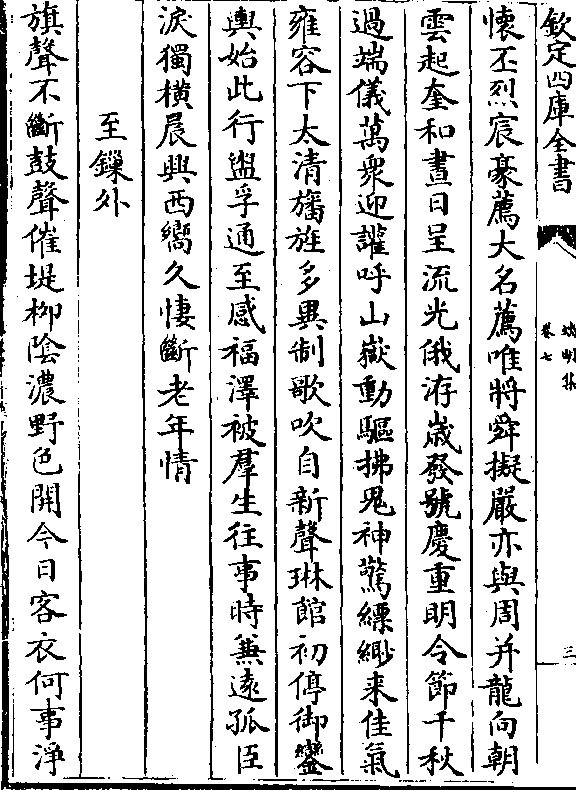 欽定四庫全書
端明集
卷七
三
懷丕烈宸豪薦大名薦唯將舜擬嚴亦與周并龍向朝
雲起奎和晝日呈流光俄洊歲發號慶重明令節千秋
過端儀萬衆迎讙呼山嶽動驅拂鬼神驚縹緲来佳氣
雍容下太清旛旌多異制歌吹自新聲琳館初停御鑾
輿始此行盥孚通至感福澤被羣生往事時兼遠孤臣
淚獨横晨興西嚮久悽斷老年情
至鏁外
旗聲不斷鼓聲催堤柳陰濃野色開今日客衣何事淨